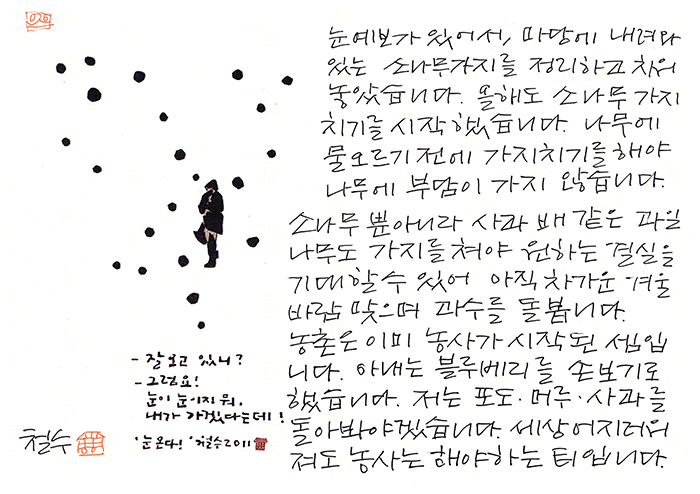 눈예보가 있어서, 마당에 내려와
있는 소나무가지를 정리하고 치워
놓았습니다. 올해도 소나무 가지
치기를 시작했습니다. 나무에
물오르기 전에 가지치기를 해야
나무에 부담이 가지 않습니다.
소나무 뿐아니라 사과 배 같은 과일
나무도 가지를 쳐야 원하는 결실을
기대할 수 있어 아직 차가운 겨울
바람 맞으며 과수를 돌봅니다.
농촌은 이미 농사가 시작된 셈입
니다. 아내는 블루베리를 손보기로
했습니다. 저는 포도·머루·사과를
돌아봐야겠습니다. 세상 어지러워
져도 농사는 해야하는 터입니다.
- 잘 보고 있니?
- 그럼요!
눈이 눈이지 뭐.
내가 가겠다는데!
'눈온다!' 철수 2011
철수